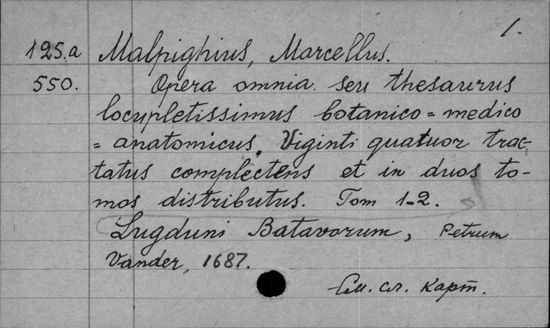 1.
125.a Malpighius, Marcellus.
550. Opera omnia seu thesaurus
locupletissimus botanico=medico
=anatomicus. Viginti quatuor trac-
tatus complectens et in duos to-
mos distributus. Tom 1-2.
Lugduni Batavorum, Petrum
Vander, 1687.
См. сл. карт.